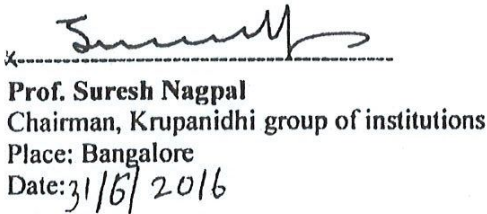 Prof. Suresh Nagpal
Chairman, Krupanidhi group of institutions
Place: Bangalore
Date: 31/6/2016